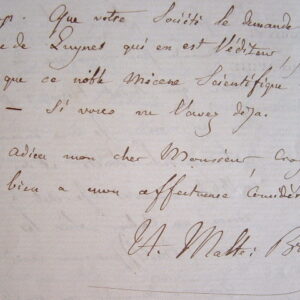 Que votre Société le demande
de Luynes qui en est l'éditeur,
que ce noble Mécène Scientifique
— Si vous ne l'avez déja.
adieu mon cher Monsieur, Croy
bien a mon affectueuse Considér
A. Mattei Br